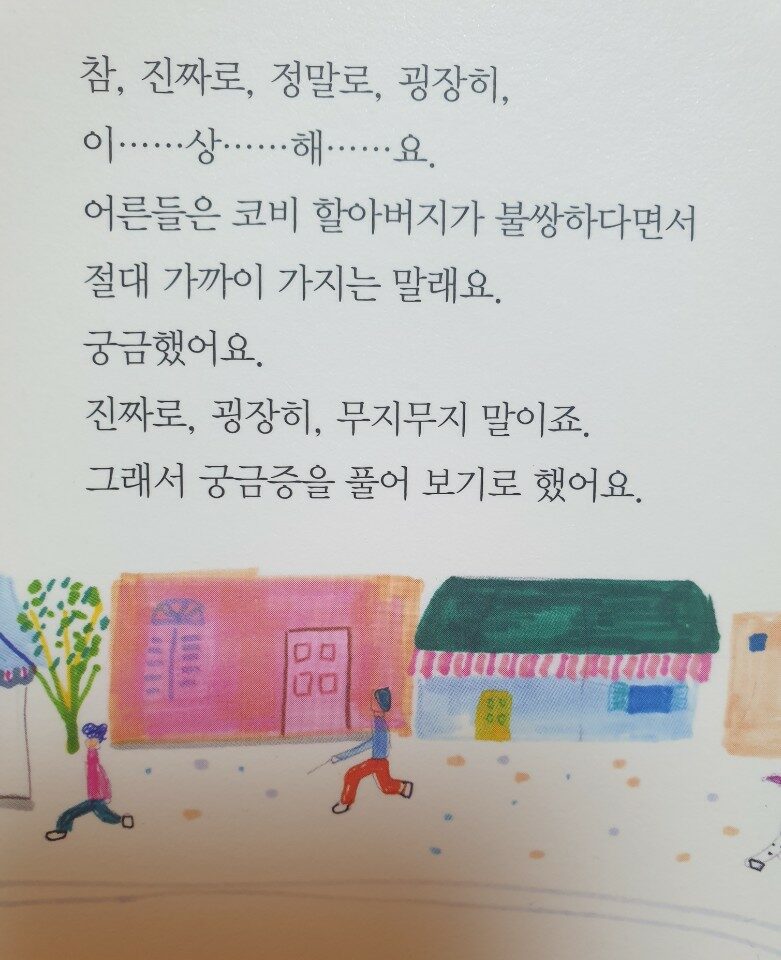 참, 진짜로, 정말로, 굉장히,
이……상……해……요.
어른들은 코비 할아버지가 불쌍하다면서
절대 가까이 가지는 말래요.
궁금했어요.
진짜로, 굉장히, 무지무지 말이죠.
그래서 궁금증을 풀어 보기로 했어요.